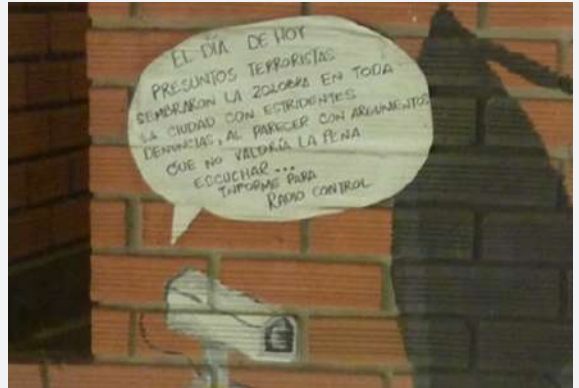 EL DÍA DE HOY
PRESUNTOS TERRORISTAS
SEMBRARON LA ZOZOBRA EN TODA
LA CIUDAD CON ESTRIDENTES
DENUNCIAS, AL PARECER CON ARGUMENTOS
QUE NO VALDRÍA LA PENA
ESCUCHAR...
INFORME PARA
RADIO CONTROL